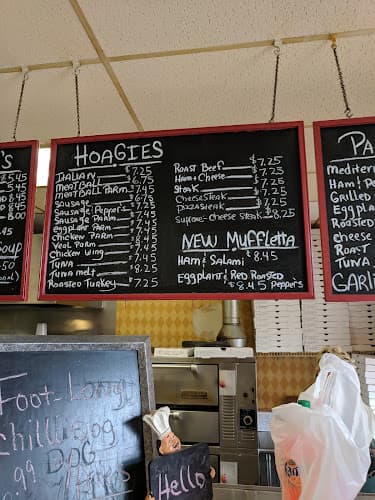 's
5.45
5.45
8.45
8.45
8.00
Soup
HOAGIES
ITALIAN $7.25
MEATBALL $6.75
MEATBALL PARM 7.45
Sausage
Sausage/Peppers
Sausage Parm
eggplant Parm
Chicken Parm
Veal Parm
Chicken Wing
TUNA
Tuna melt 8.25
Roasted Turkey $7.25
Roast Beef $7.25
Ham & Cheese 7.25
Steak 7.25
Cheesesteak 7.25
Pizzasteak 7.25
Supreme-Cheese Steak $8.25
NEW Muffletta
HAM & Salami $8.45
Eggplant & Red Roasted Peppers $8.45
PA
Mediterr
Ham & Pe
Grilled
Eggpla
Roasted
cheese
ROAST
TUNA
GARLI
Foot-Long
Chilli Dog
.99 DOG
Hello